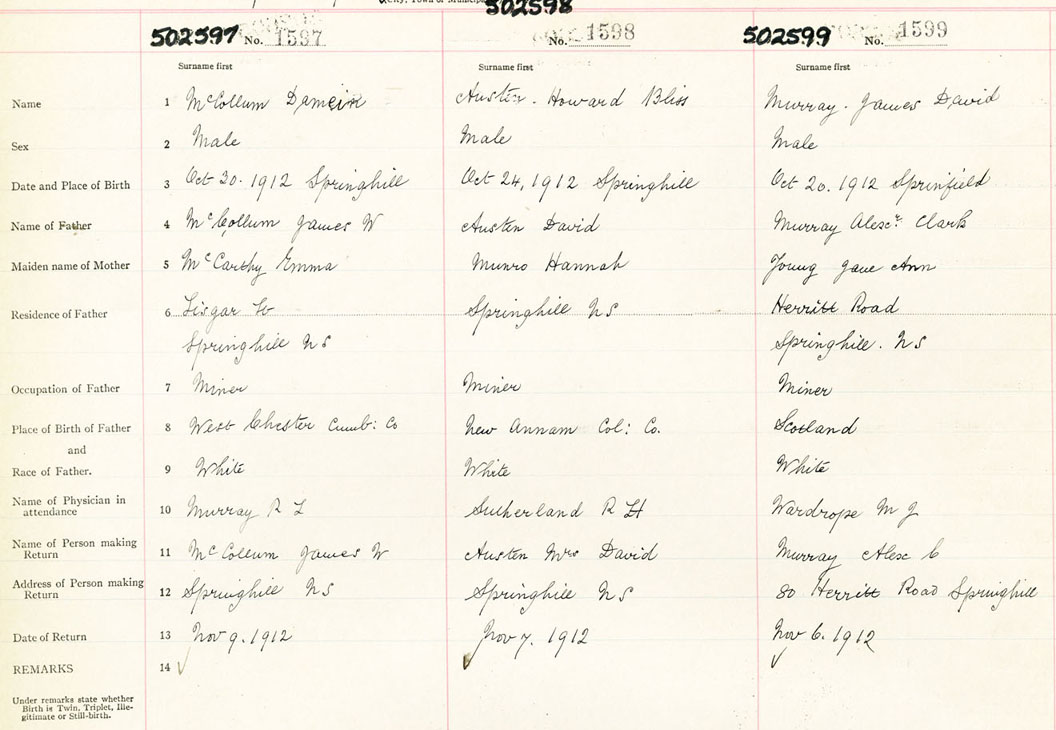 502597 No. 1597 502598 No. 1598 502599 No. 1599
Surname first Surname first Surname first
Name 1 McCollum Austen. Howard Bliss Murray. James David
Sex 2 Male Male Male
Date and Place of Birth 3 Oct 30. 1912 Springhill Oct 24, 1912 Springhill Oct 20. 1912 Sprinfield
Name of Father 4 McCollum James W Austen David Murray Alexr. Clark
Maiden name of Mother 5 McCarthy Emma Munro Hannah Young Jane Ann
Residence of Father 6 Lisgar St Springhill NS Herritt Road
Springhill NS Springhill. NS
Occupation of Father 7 Miner Miner Miner
Place of Birth of Father 8 West Chester Cumb: Co New Annam Col: Co. Scotland
and
Race of Father. 9 White White White
Name of Physician in
attendance 10 Murray R L Sutherland R H Wardrope M J
Name of Person making
Return 11 McCollum James W Austen Mrs David Murray Alex C
Address of Person making
Return 12 Springhill NS Springhill NS 80 Herritt Road Springhill
Date of Return 13 Nov 9. 1912 Nov 7. 1912 Nov 6. 1912
REMARKS 14 ✓ ✓ ✓
Under remarks state whether
Birth is Twin, Triplet, Ille-
gitimate or Still-birth.